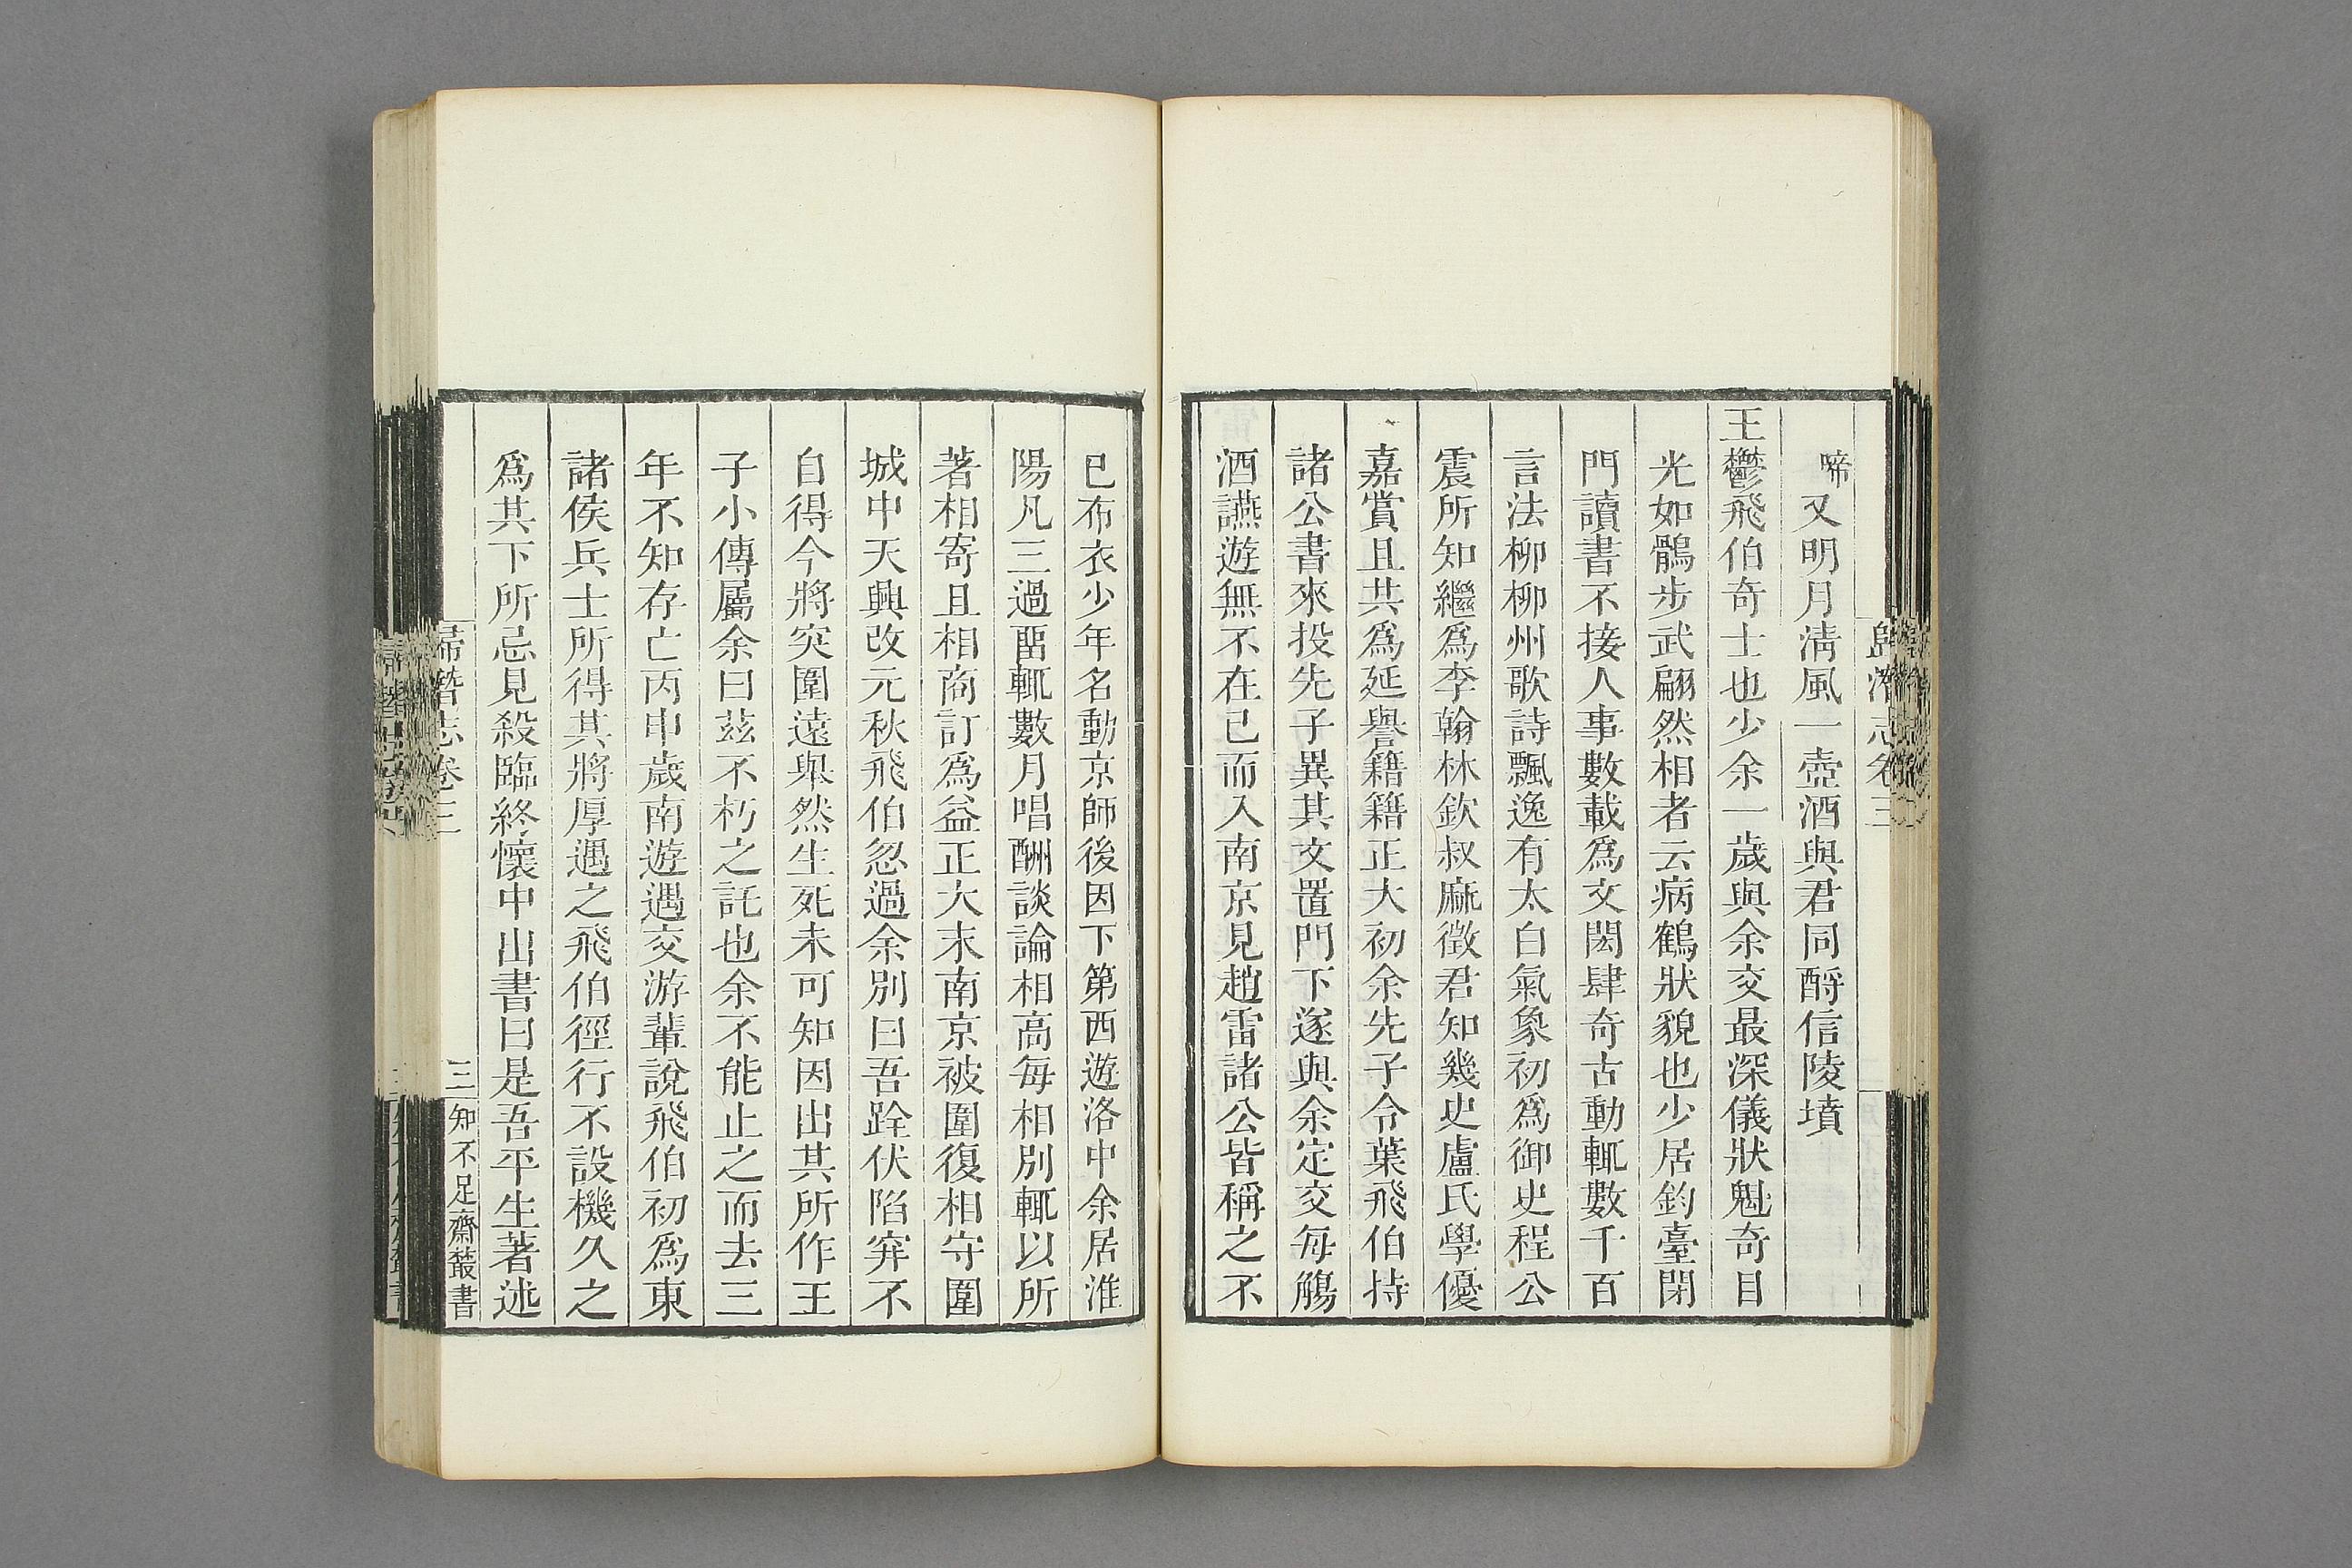 歸潛志卷三
啼又明月淸風一壺酒與君同酹信陵墳
王鬱飛伯奇士也少余一歲與余交最深儀狀魁奇目
光如鶻步武翩然相者云病鶴狀貌也少居釣臺閉
門讀書不接人事數載爲文閎肆奇古動輒數千百
言法柳柳州歌詩飄逸有太白氣象初爲御史程公
震所知繼爲李翰林欽叔麻徵君知幾史盧氏學優
嘉賞且共爲延譽籍籍正大初余先子令葉飛伯持
諸公書來投先子異其文置門下遂與余定交每觴
酒讌遊無不在已而入南京見趙雷諸公皆稱之不
已布衣少年名動京師後因下第西遊洛中余居淮
陽凡三過畱輒數月唱酬談論相高每相別輒以所
著相寄且相商訂爲益正大末南京被圍復相守圍
城中天興改元秋飛伯忽過余別曰吾跧伏陷穽不
自得今將突圍遠舉然生死未可知因出其所作王
子小傳屬余曰茲不朽之託也余不能止之而去三
年不知存亡丙申歲南遊遇交游輩說飛伯初爲東
諸侯兵士所得其將厚遇之飛伯徑行不設機久之
爲其下所忌見殺臨終懷中出書曰是吾平生著述
歸潛志卷三
三
知不足齋叢書